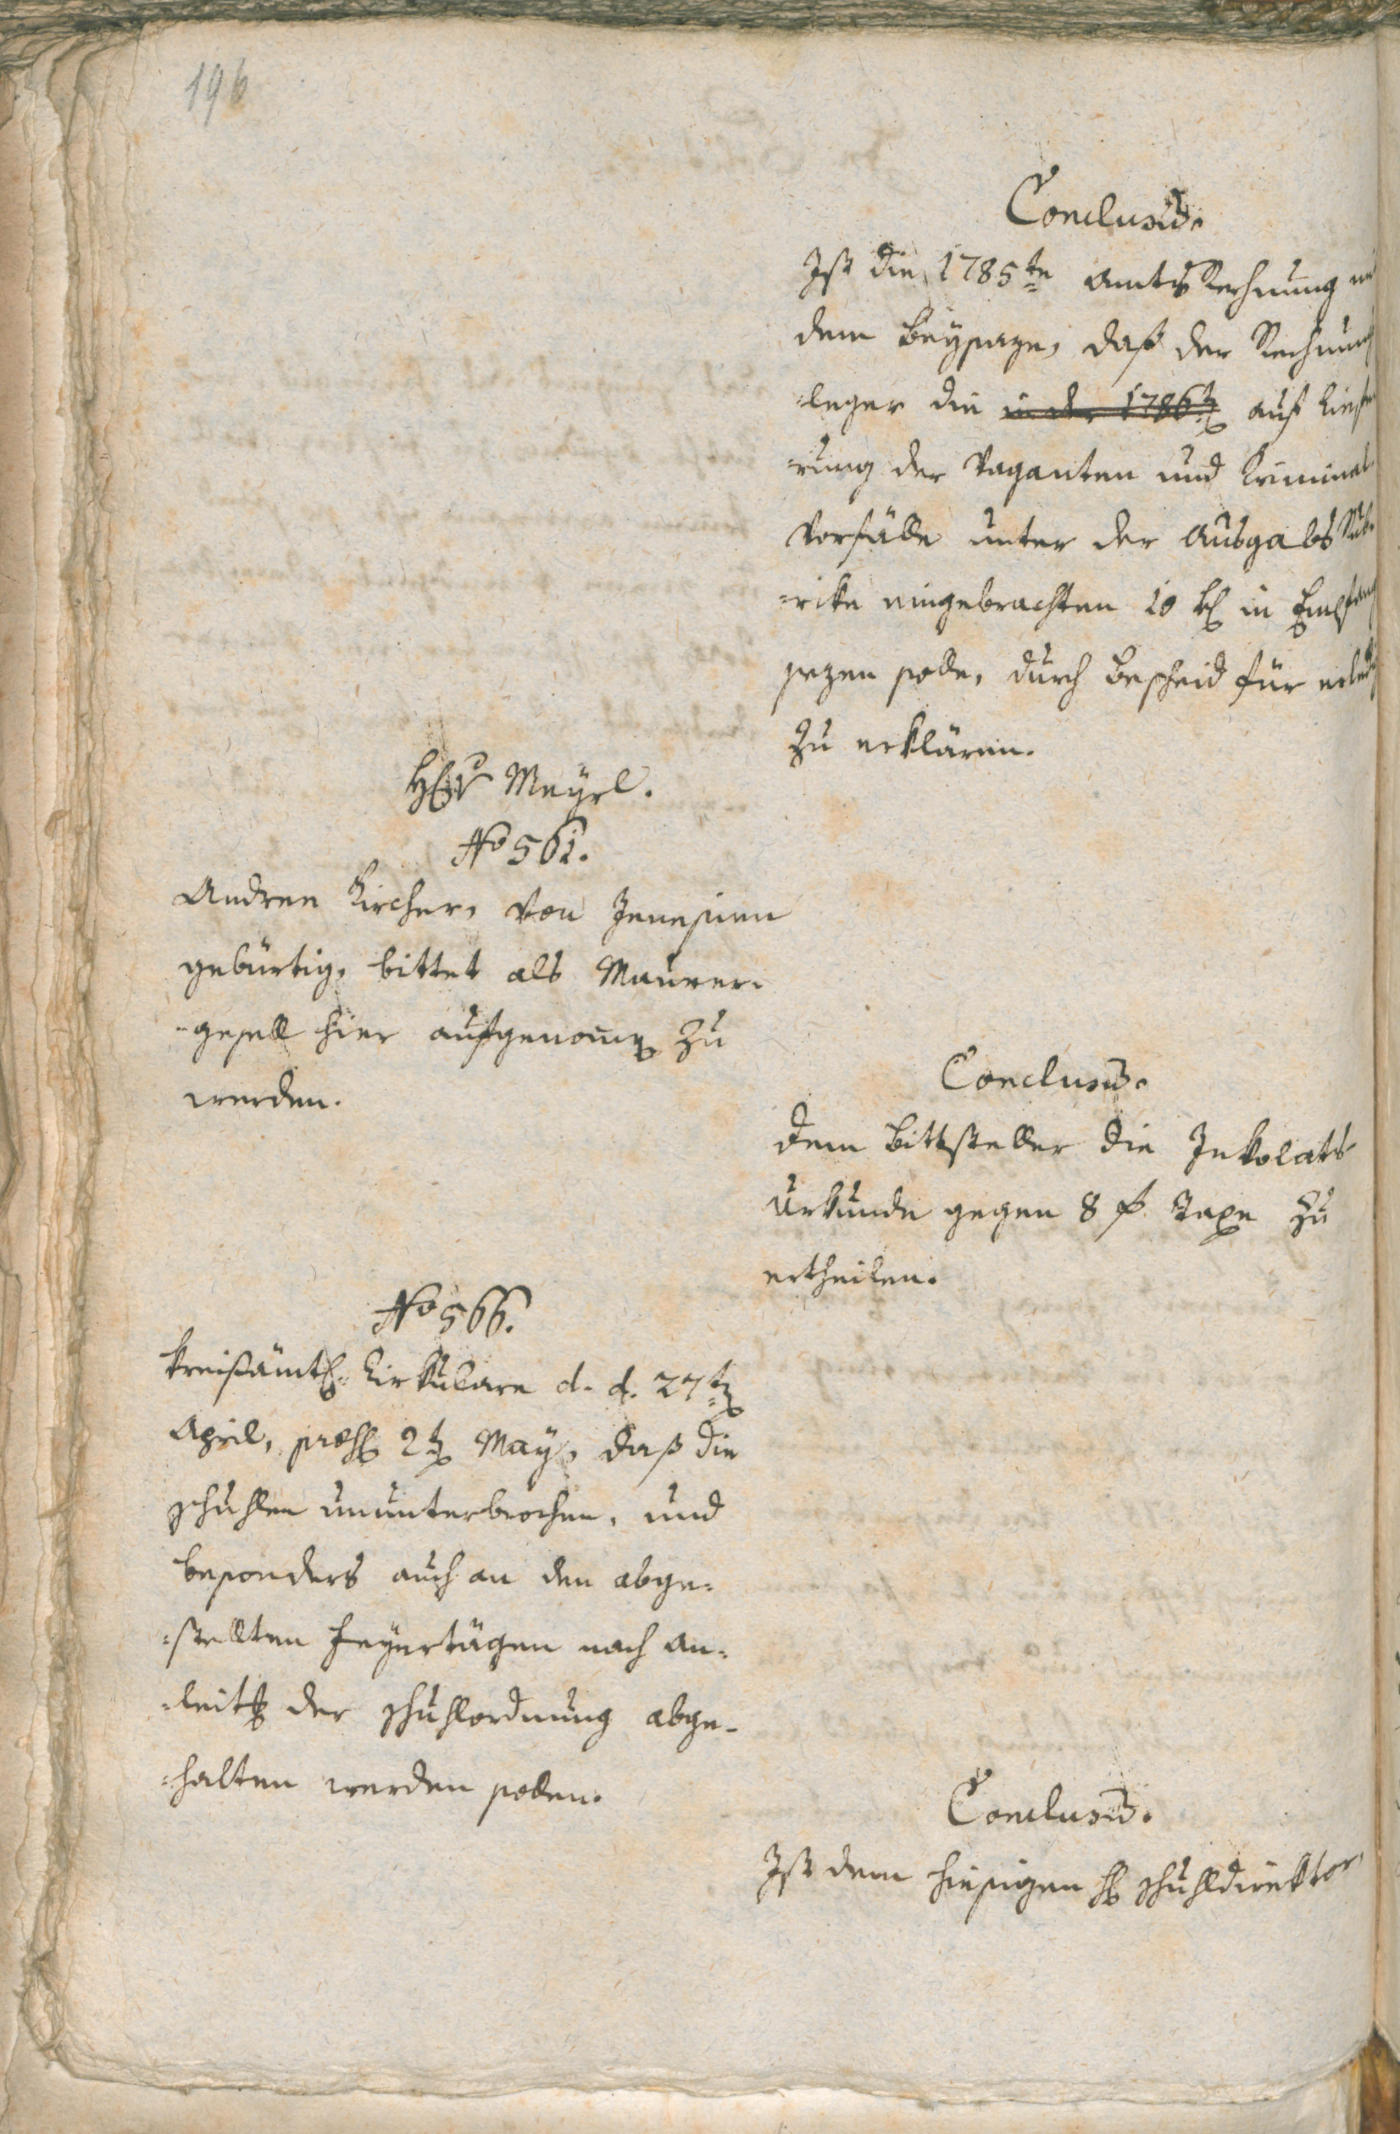 196
Conclusum.
Ist die 1785te Amts Rechnung
dem Beysaze, daß der Rechnung
=leger die in der 1786ten auf Liefe
=rung der Vaganten und Kriminal
Vorfälle unter der Ausgabs Rub
=rike eingebrachten 10 kr in Empfang
sezen solle, durch Bescheid für erledig
zu erklären.
Herr Meyrl.
No 561.
Andree Kircher, von Jenesien
gebürtig, bittet als Maurer=
=gesell hier aufgenomen zu
werden.
Conclusum.
dem Bittsteller die Inkolats
Urkunde gegen 8 f Taxe zu
ertheilen.
No 566.
Kreißämtl. Zirkulare d. d. 27ten
April, praes. 2ten May, daß die
Schuhlen ununterbrochen, und
besonders auch an den abge=
=stellten Feyertägen nach An=
=leitung der Schuhlordnung abge=
=halten werden sollen.
Conclusum.
Ist dem hiesigen H. Schuhldirektor,